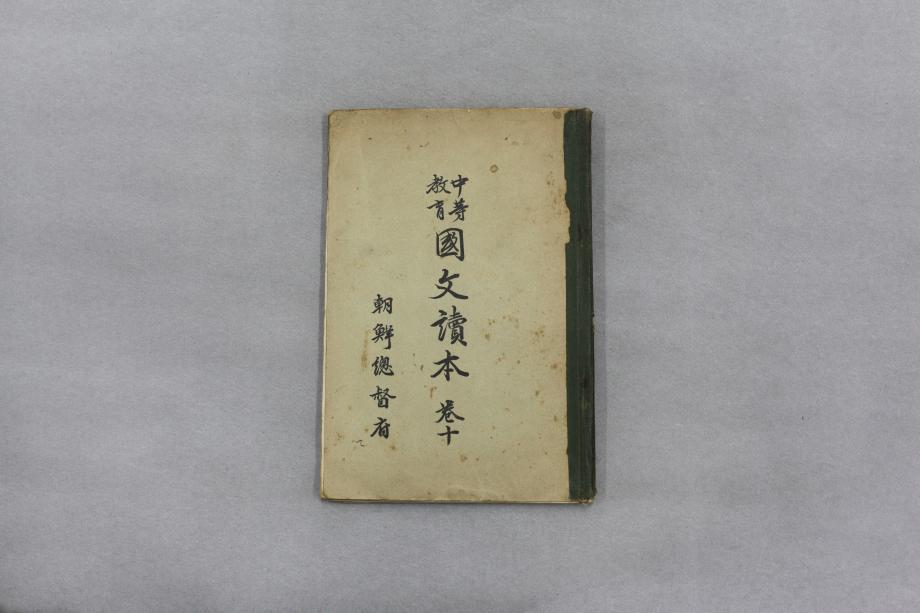 中等
教育
國文讀本 卷十
朝鮮總督府